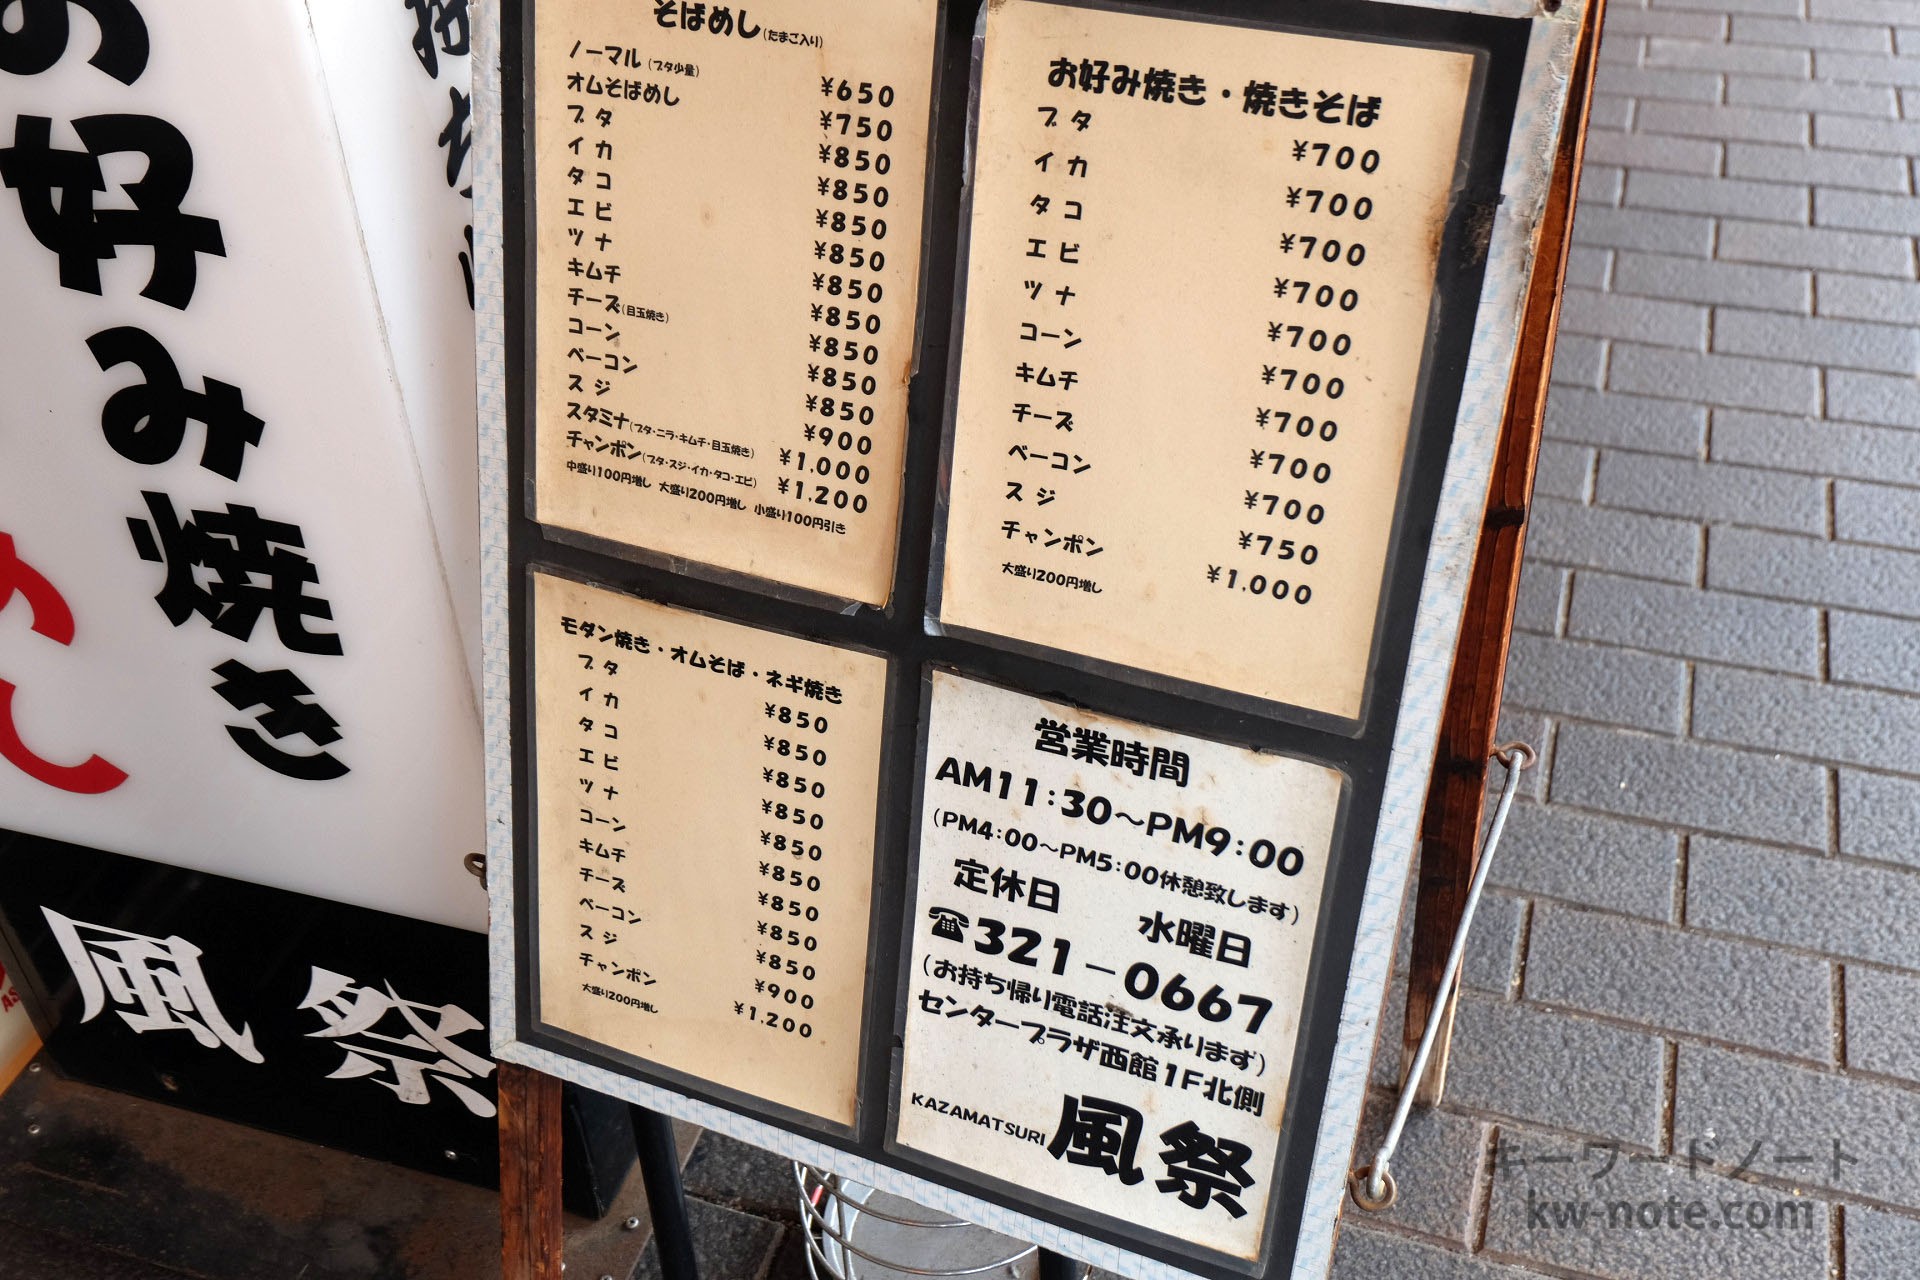 お好み焼き
めし
風祭
そばめし(たまご入り)
ノーマル(ブタ少量) ¥650
オムそばめし ¥750
ブタ ¥850
イカ ¥850
タコ ¥850
エビ ¥850
ツナ ¥850
キムチ ¥850
チーズ(目玉焼き) ¥850
コーン ¥850
ベーコン ¥850
スジ ¥900
スタミナ(ブタ・ニラ・キムチ・目玉焼き) ¥1.000
チャンポン(ブタ・スジ・イカ・タコ・エビ) ¥1.200
中盛り100円増し 大盛り200円増し 小盛り100円引き
お好み焼き・焼きそば
ブタ ¥700
イカ ¥700
タコ ¥700
エビ ¥700
ツナ ¥700
コーン ¥700
キムチ ¥700
チーズ ¥700
ベーコン ¥700
スジ ¥750
チャンポン ¥1.000
大盛り200円増し
モダン焼き・オムそば・ネギ焼き
ブタ ¥850
イカ ¥850
タコ ¥850
エビ ¥850
ツナ ¥850
コーン ¥850
キムチ ¥850
チーズ ¥850
ベーコン ¥850
スジ ¥900
チャンポン ¥1.200
大盛り200円増し
営業時間
AM11:30〜PM9:00
(PM4:00〜PM5:00休憩致します)
定休日 水曜日
☎321-0667
(お持ち帰り電話注文承ります)
センタープラザ西館1F北側
KAZAMATSURI 風祭
キーワードノート
kw-note.com